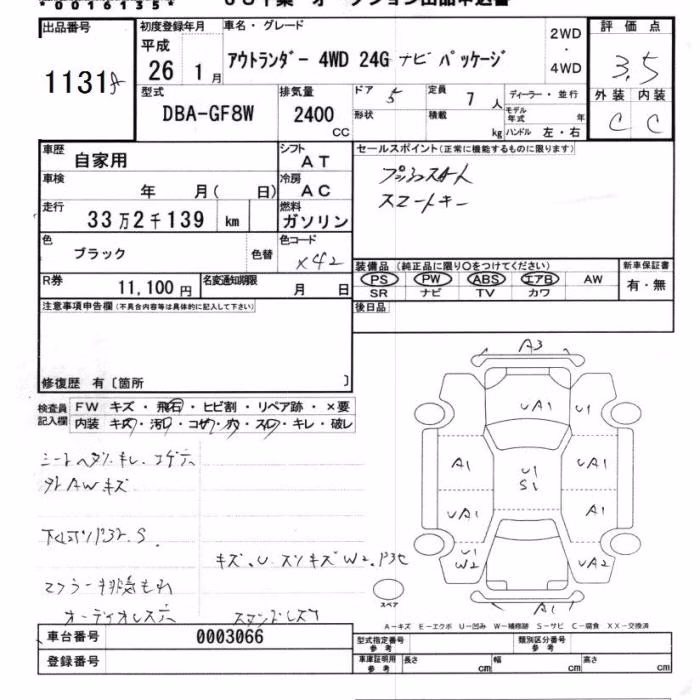 *00161135*
出品番号
初度登録年月
車名・グレード
2WD
・
4WD
評価点
平成
26 1月
アウトランダー 4WD 24G ナビ パッケージ
3.5
1131
型式
DBA-GF8W
排気量
2400
CC
ドア 5
形状
定員 7 人
積載 kg
ディーラー・並行
モデル年式 年
ハンドル 左・右
外装 内装
C C
車歴
自家用
シフト
AT
セールスポイント(正常に機能するものに限ります)
プッシュスタート
スマートキー
車検
年 月( 日)
冷房
AC
走行
33万2千139 km
燃料
ガソリン
色
ブラック
色替
色コード
X42
装備品(純正品に限り○をつけてください)
新車保証書
PS PW ABS エアB AW
SR ナビ TV カワ
有・無
R券
11,100円
名変通知期限
月 日
後日品
注意事項申告欄(不具合内容等は具体的に記入して下さい)
修復歴 有〔箇所 〕
検査員
記入欄
FW キズ・飛石・ヒビ割・リペア跡・×要
内装 キズ・汚レ・コゲ・穴・スレ・キレ・破レ
シートヘタリ、キレ、コゲ穴
外AWキズ
キズ、U、スリキズW2、ドヨヒ
マフラー排気もれ
オーディオレス穴
A3
UA1
U1
A1
U1
S1
UA1
UA1
A1
U1
W2
UA2
A1
スペア
A-キズ E-エクボ U-凹み W-補修跡 S-サビ C-腐食 XX-交換済
車台番号
0003066
型式指定番号
参考
類別区分番号
参考
登録番号
車庫証明用
参考
長さ cm
幅 cm
高さ cm